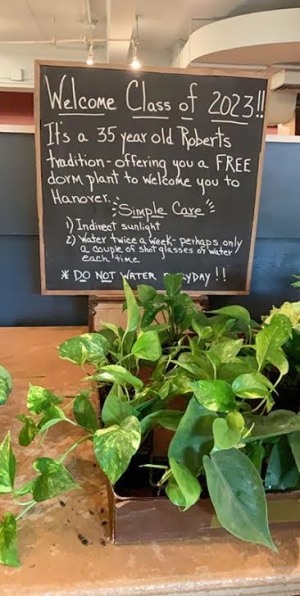 Welcome Class of 2023!!
It's a 35 year old Roberts
tradition - offering you a FREE
dorm plant to welcome you to
Hanover.
Simple Care
1) Indirect sunlight
2) Water twice a week - perhaps only
a couple of shot glasses of water
each time
* DO NOT WATER EVERYDAY!!